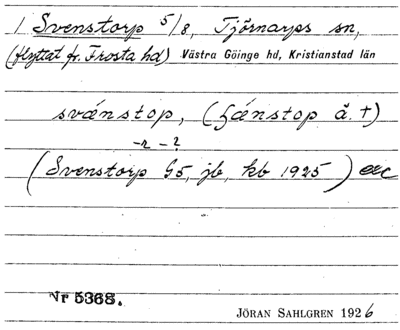 1 Svenstorp 5/8, Tjörnarps sn,
(flyttat fr. Frosta hd) Västra Göinge hd, Kristianstad län
svǽnstop, (sǽnstop ä. †)
-r- ?
(Svenstorp G5, jb, kb 1925)
Nr 5368.
JÖRAN SAHLGREN 1926